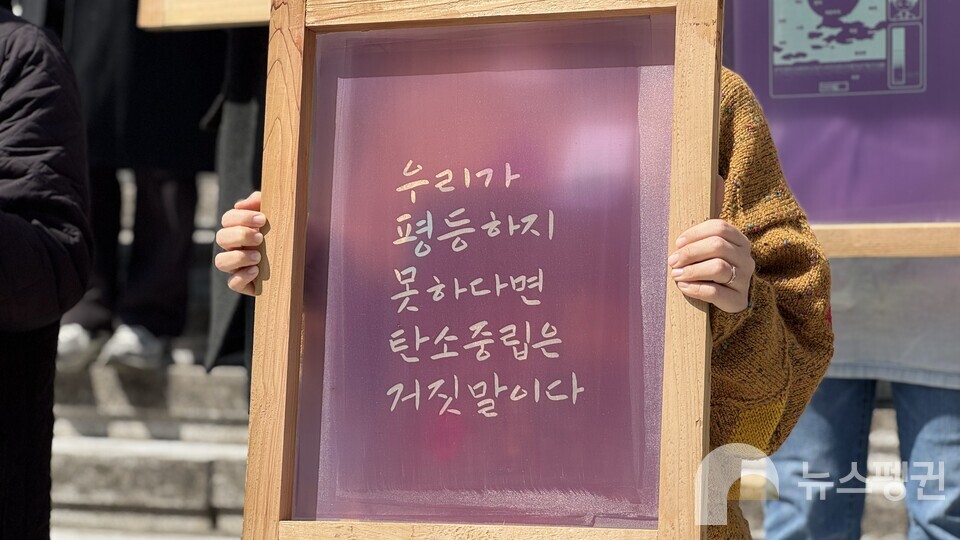 우리가
평등하지
못하다면
탄소중립은
거짓말이다
뉴스펭귄